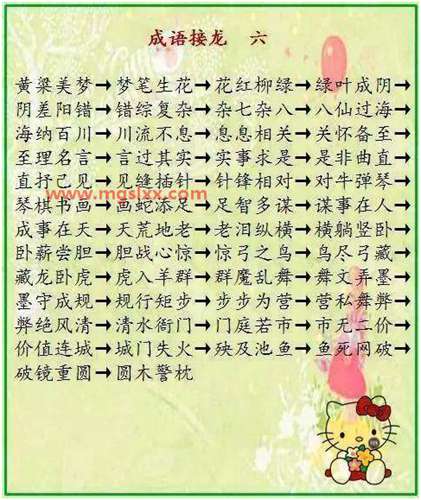 成语接龙 六
黄粱美梦→梦笔生花→花红柳绿→绿叶成阴→
阴差阳错→错综复杂→杂七杂八→八仙过海→
海纳百川→川流不息→息息相关→关怀备至→
至理名言→言过其实→实事求是→是非曲直→
直抒己见→见缝插针→针锋相对→对牛弹琴→
www.mgslxx.com
琴棋书画→画蛇添足→足智多谋→谋事在人→
成事在天→天荒地老→老泪纵横→横躺竖卧→
卧薪尝胆→胆战心惊→惊弓之鸟→鸟尽弓藏→
藏龙卧虎→虎入羊群→群魔乱舞→舞文弄墨→
墨守成规→规行矩步→步步为营→营私舞弊→
弊绝风清→清水衙门→门庭若市→市无二价→
价值连城→城门失火→殃及池鱼→鱼死网破→
破镜重圆→圆木警枕